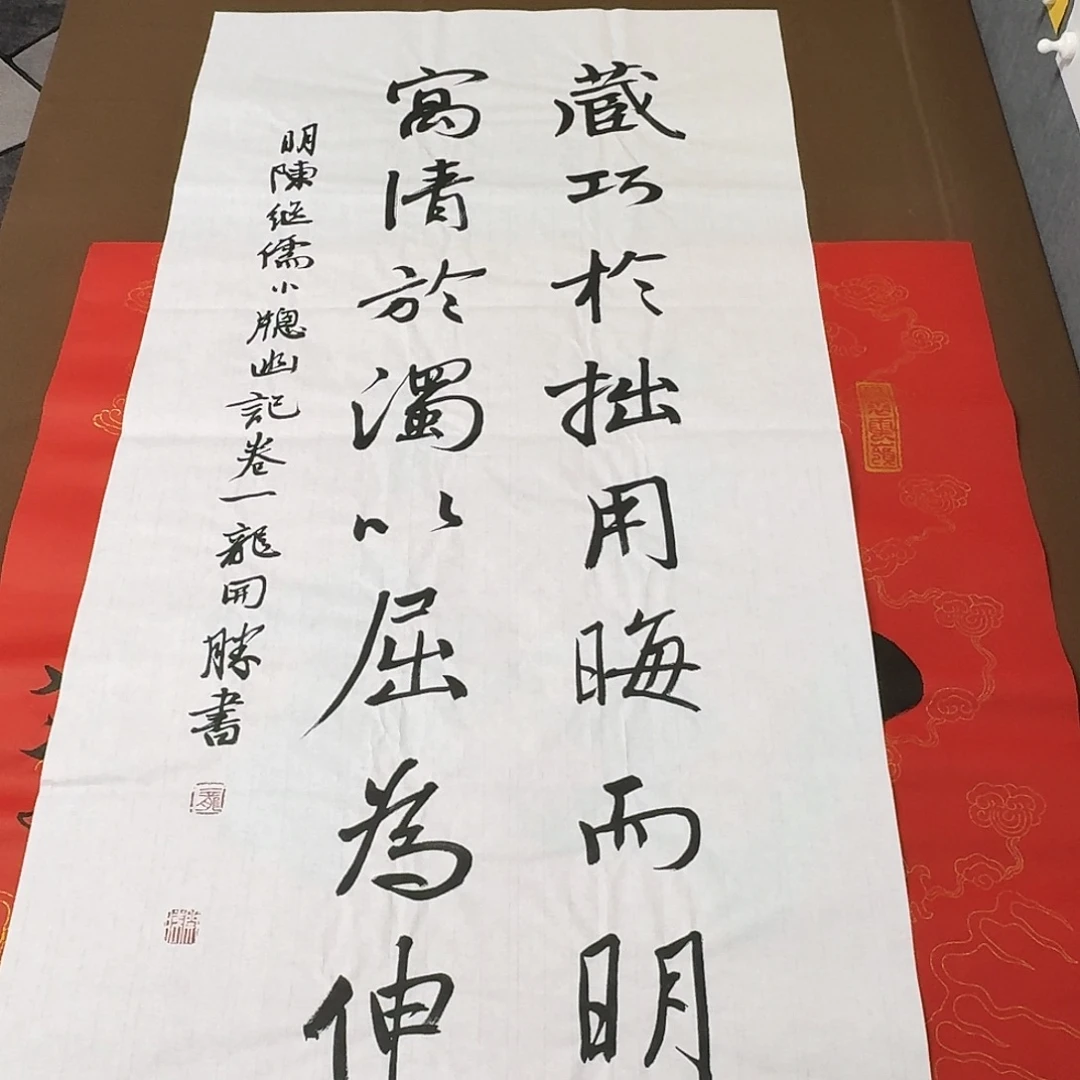 藏巧於拙用晦而明
寓清於濁以屈為伸
明陳継儒小牕幽記卷一龍開勝書